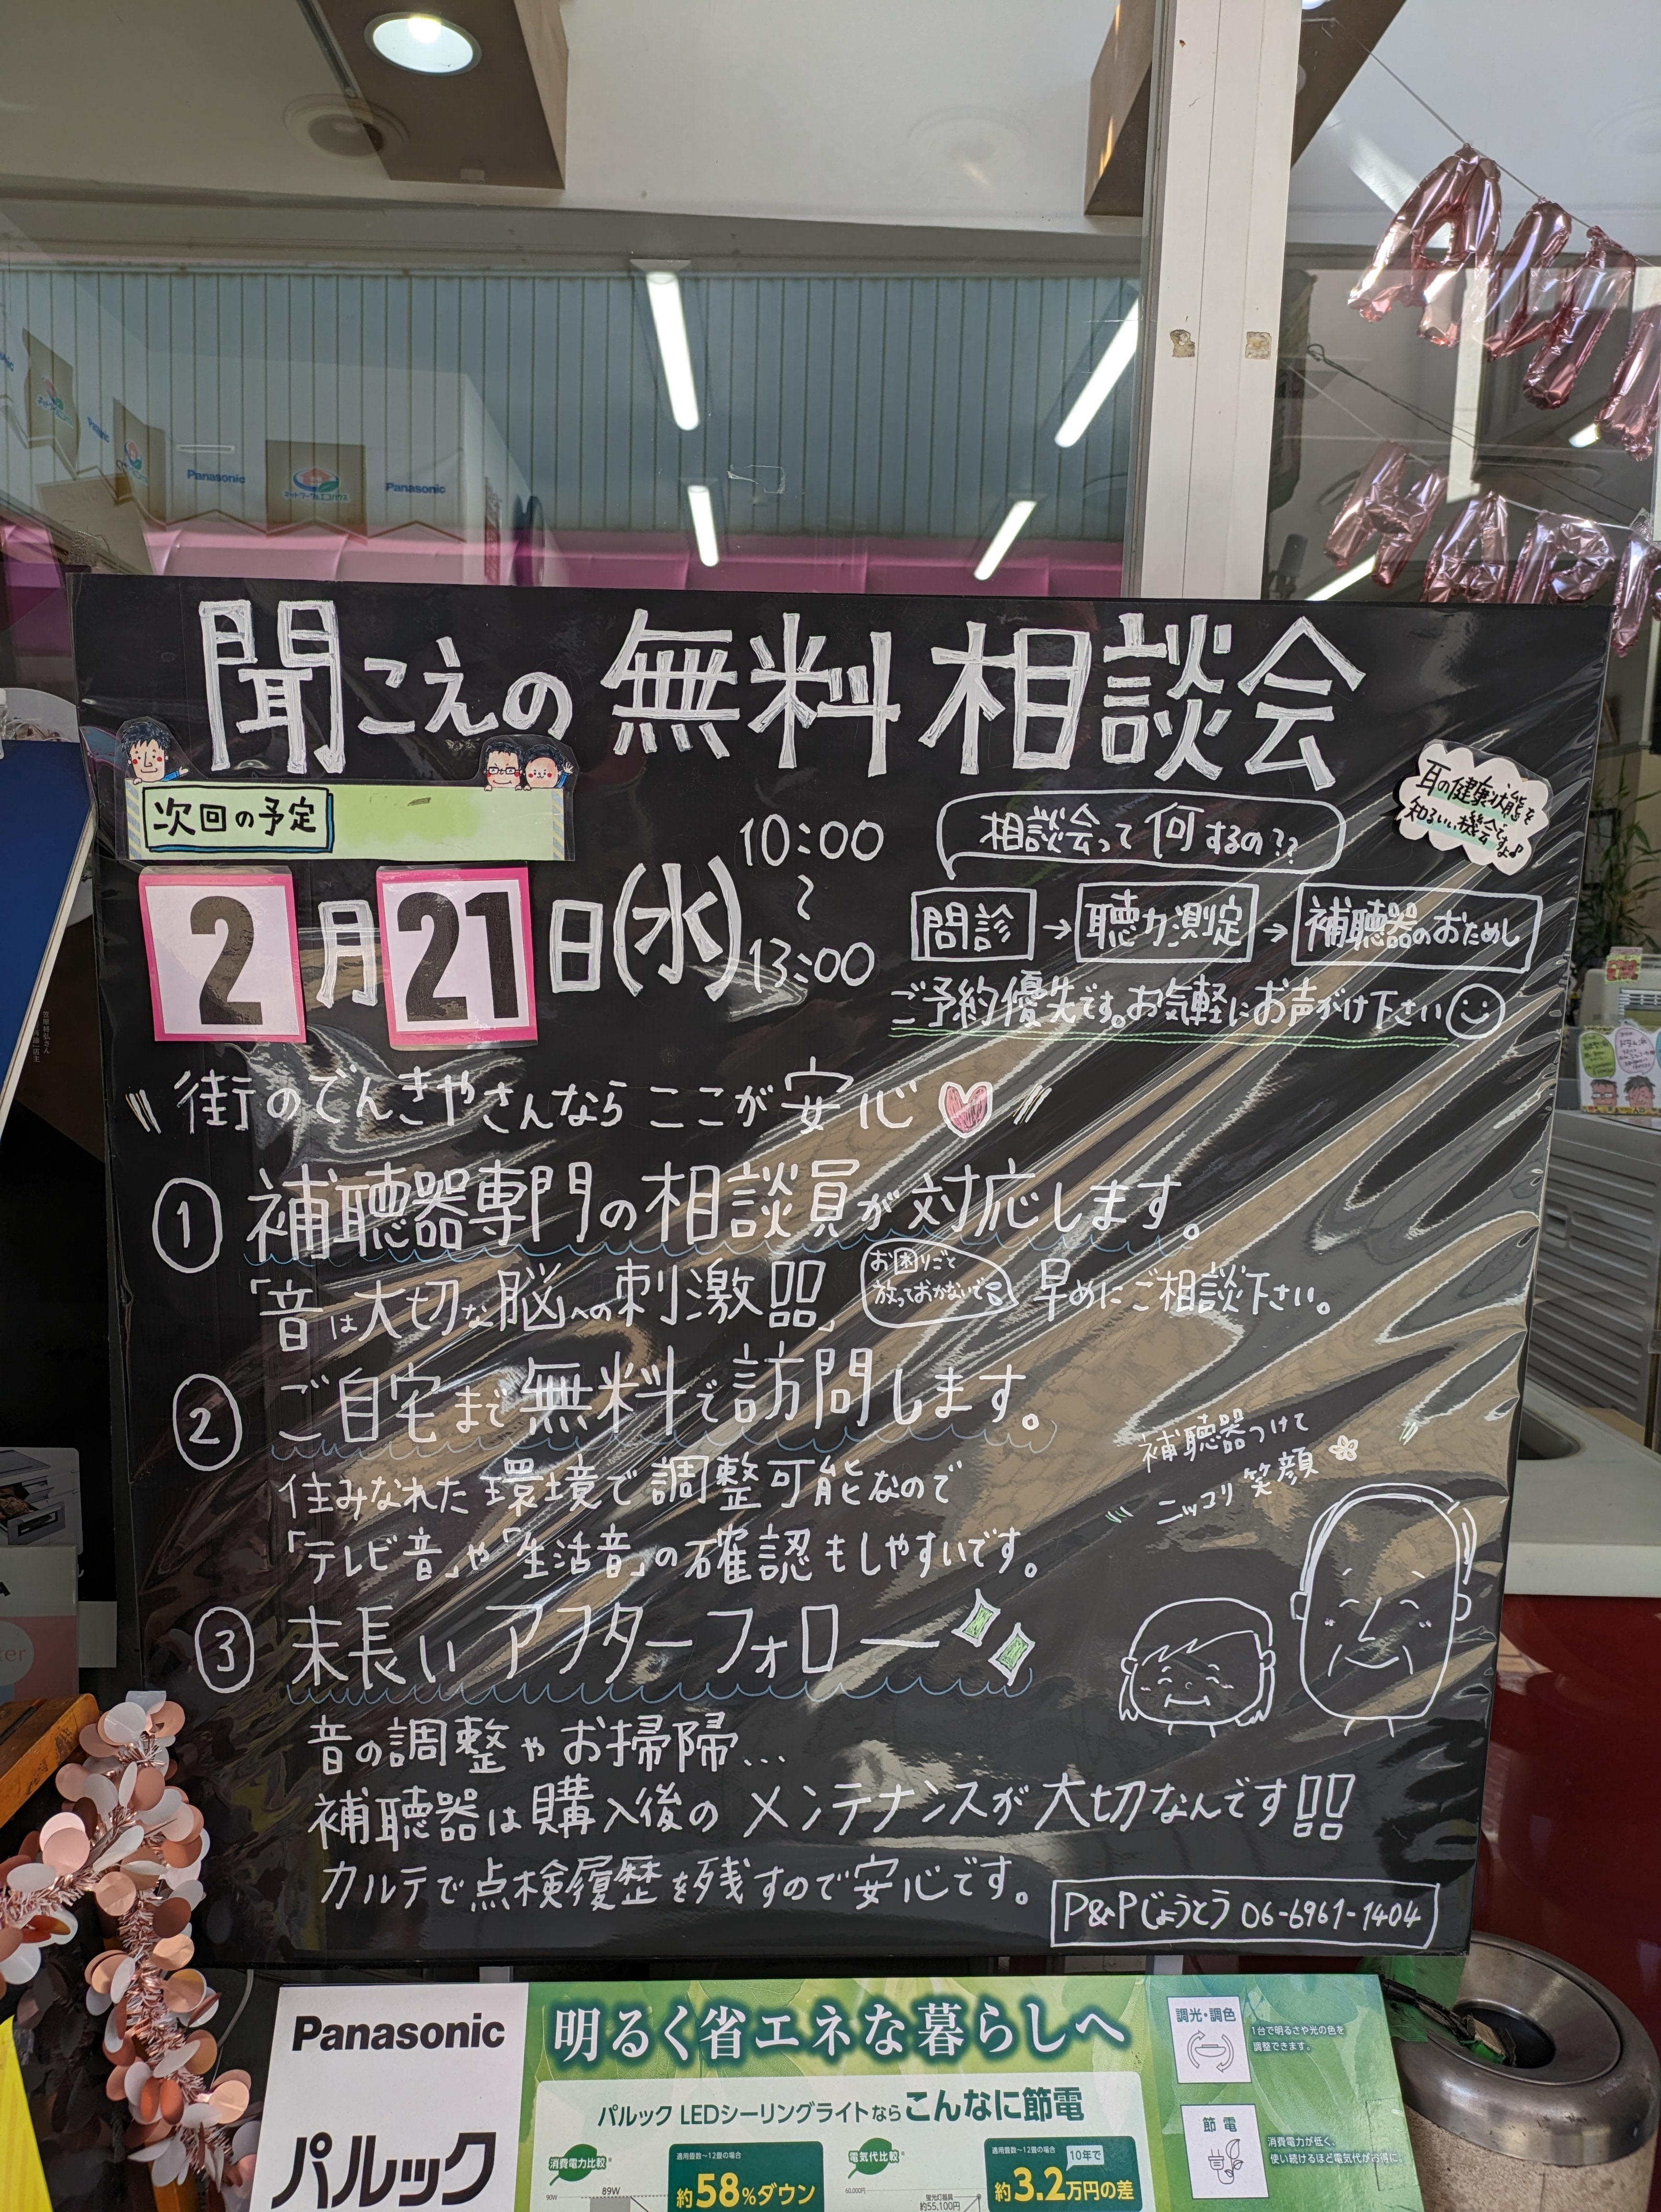 Panasonic
Panasonic
聞こえの無料相談会
次回の予定
2月21日(水)
10:00
〜
13:00
相談会って何するの??
耳の健康状態を
知るいい機会ですよ♪
問診→聴力測定→補聴器のおためし
ご予約優先です。お気軽にお声がけ下さい
街のでんきやさんなら ここが安心
① 補聴器専門の相談員が対応します。
「音は大切な脳への刺激!!」
お困りごと
放っておかないで
早めにご相談下さい。
② ご自宅まで無料で訪問します。
住みなれた環境で調整可能なので
「テレビ音」や「生活音」の確認もしやすいです。
補聴器つけて
ニッコリ笑顔
③ 末長いアフターフォロー
音の調整やお掃除...
補聴器は購入後のメンテナンスが大切なんです!!
カルテで点検履歴を残すので安心です。
P&Pじょうとう 06-6961-1404
Panasonic
パルック
明るく省エネな暮らしへ
パルック LEDシーリングライトならこんなに節電
消費電力比較
適用畳数〜12畳の場合
約58%ダウン
89W
90W
電気代比較
適用畳数〜12畳の場合
10年で
約3.2万円の差
60,000円
蛍光灯器具
約55,100円
調光・調色
1台で明るさや光の色を
調整できます。
節電
消費電力が低く、
使い続けるほど電気代がお得に。